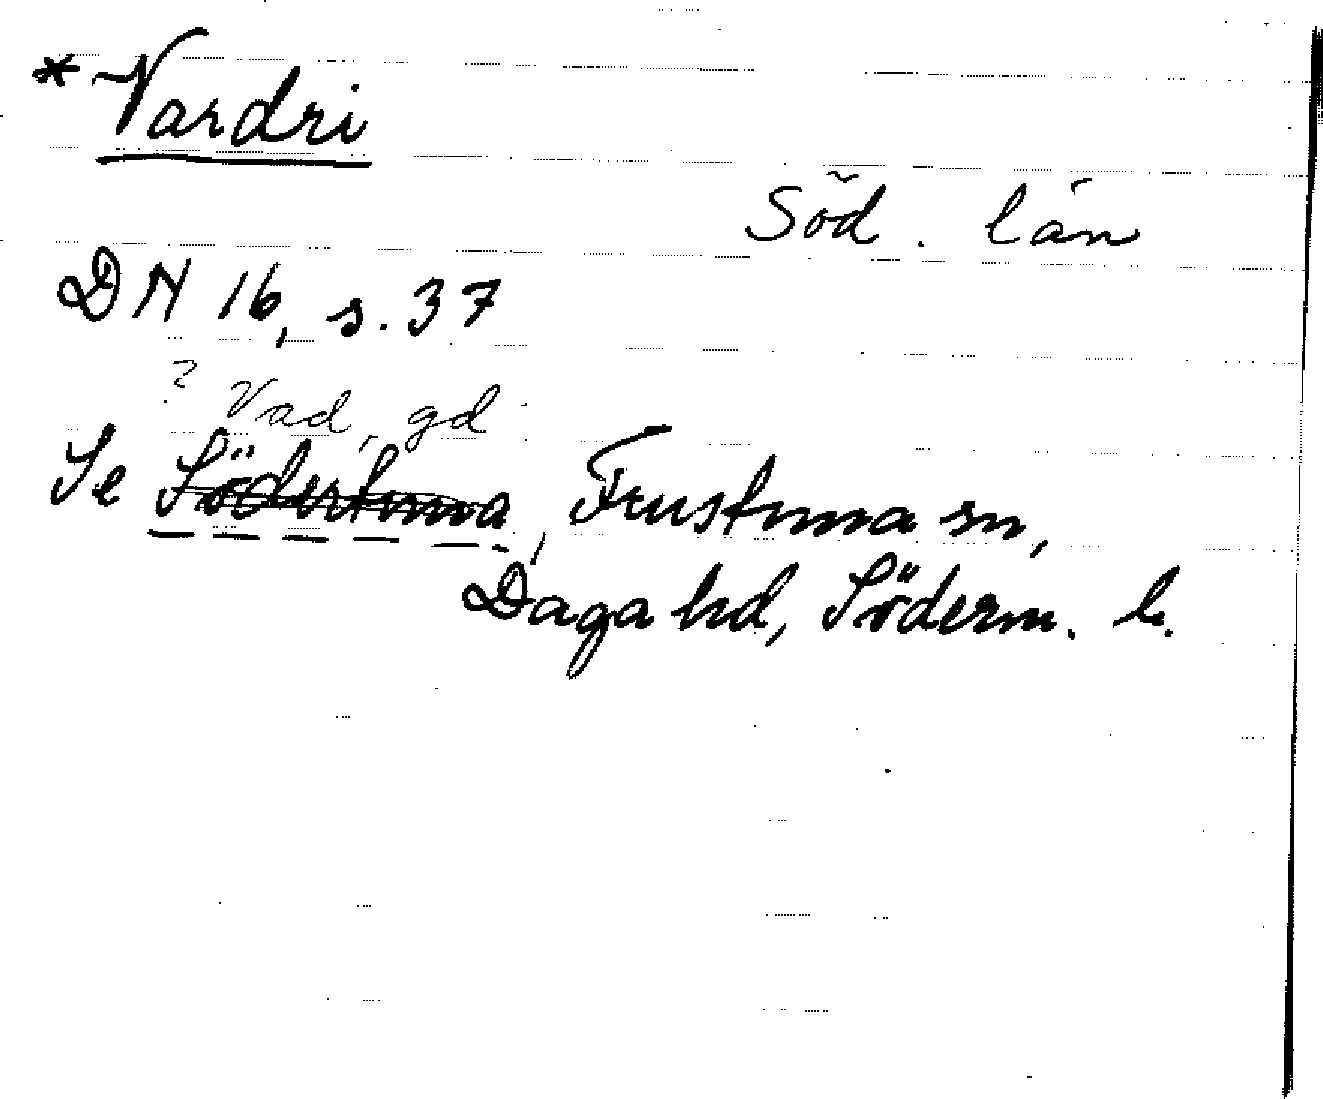 * Vardri
Söd. län
DN 16, s. 37
? Vad, gd
Se Södertuna, Frustuna sn,
Daga hd, Söderm. l.